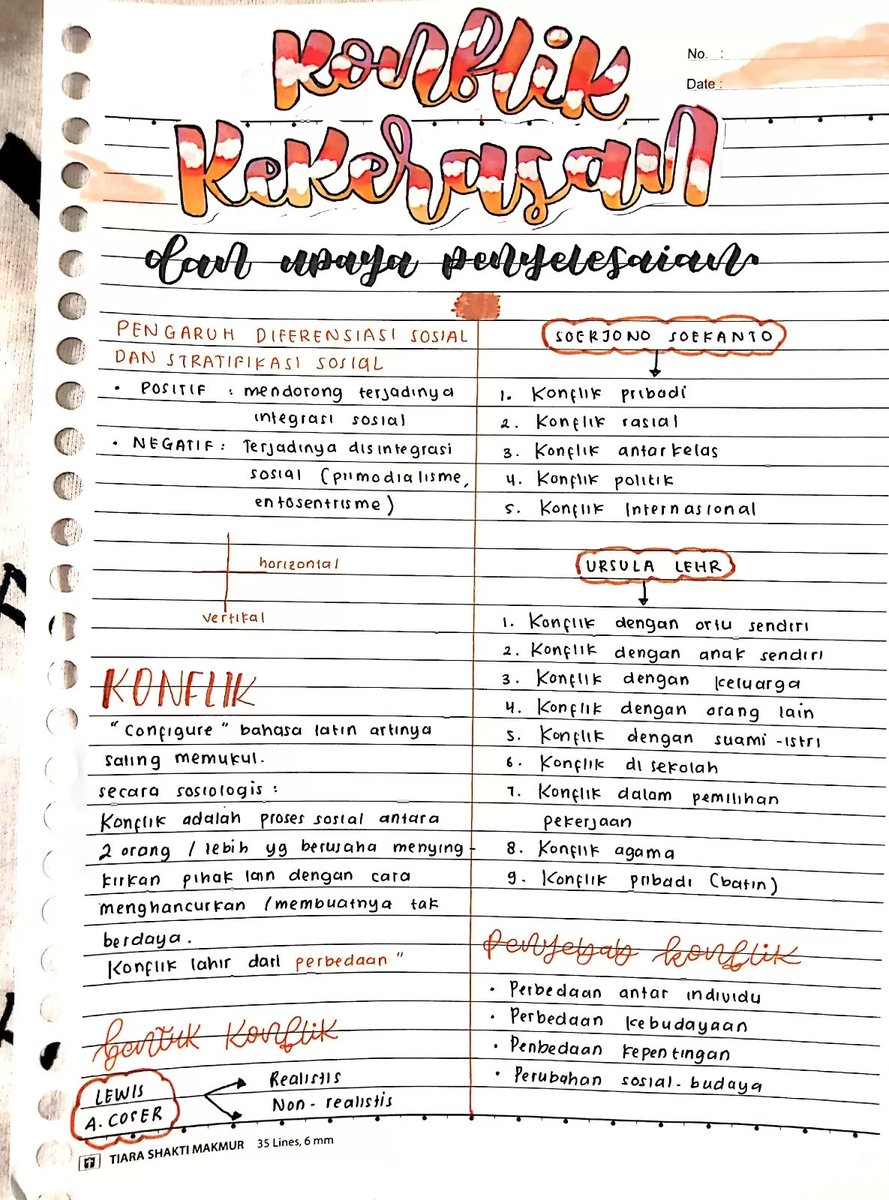 Konflik
No. :
Date :
Kekerasan
dan upaya penyelesaian.
PENGARUH DIFERENSIASI SOSIAL
DAN STRATIFIKASI SOSIAL
• POSITIF : mendorong terjadinya
integrasi sosial
• NEGATIF : Terjadinya disintegrasi
sosial (primodialisme,
entosentrisme)
horizontal
vertikal
KONFLIK
"Configure" bahasa latin artinya
saling memukul.
secara sosiologis :
Konflik adalah proses sosial antara
2 orang / lebih yg berusaha menying-
kirkan pihak lain dengan cara
menghancurkan /membuatnya tak
berdaya.
Konflik lahir dari perbedaan"
bentuk konflik
LEWIS
A. COSER
Realistis
Non-realistis
SOERJONO SOEKANTO
1. Konflik pribadi
2. Konflik rasial
3. Konflik antarkelas
4. Konflik politik
5. Konflik Internasional
URSULA LEHR
1. Konflik dengan ortu sendiri
2. Konflik dengan anak sendiri
3. Konflik dengan keluarga
4. Konflik dengan orang lain
5. Konflik dengan suami-istri
6. Konflik di sekolah
7. Konflik dalam pemilihan
pekerjaan
8. Konflik agama
9. Konflik pribadi (batin)
Penyebab konflik
• Perbedaan antar individu
• Perbedaan kebudayaan
• Penbedaan kepentingan
• Perubahan sosial-budaya
TIARA SHAKTI MAKMUR 35 Lines, 6 mm